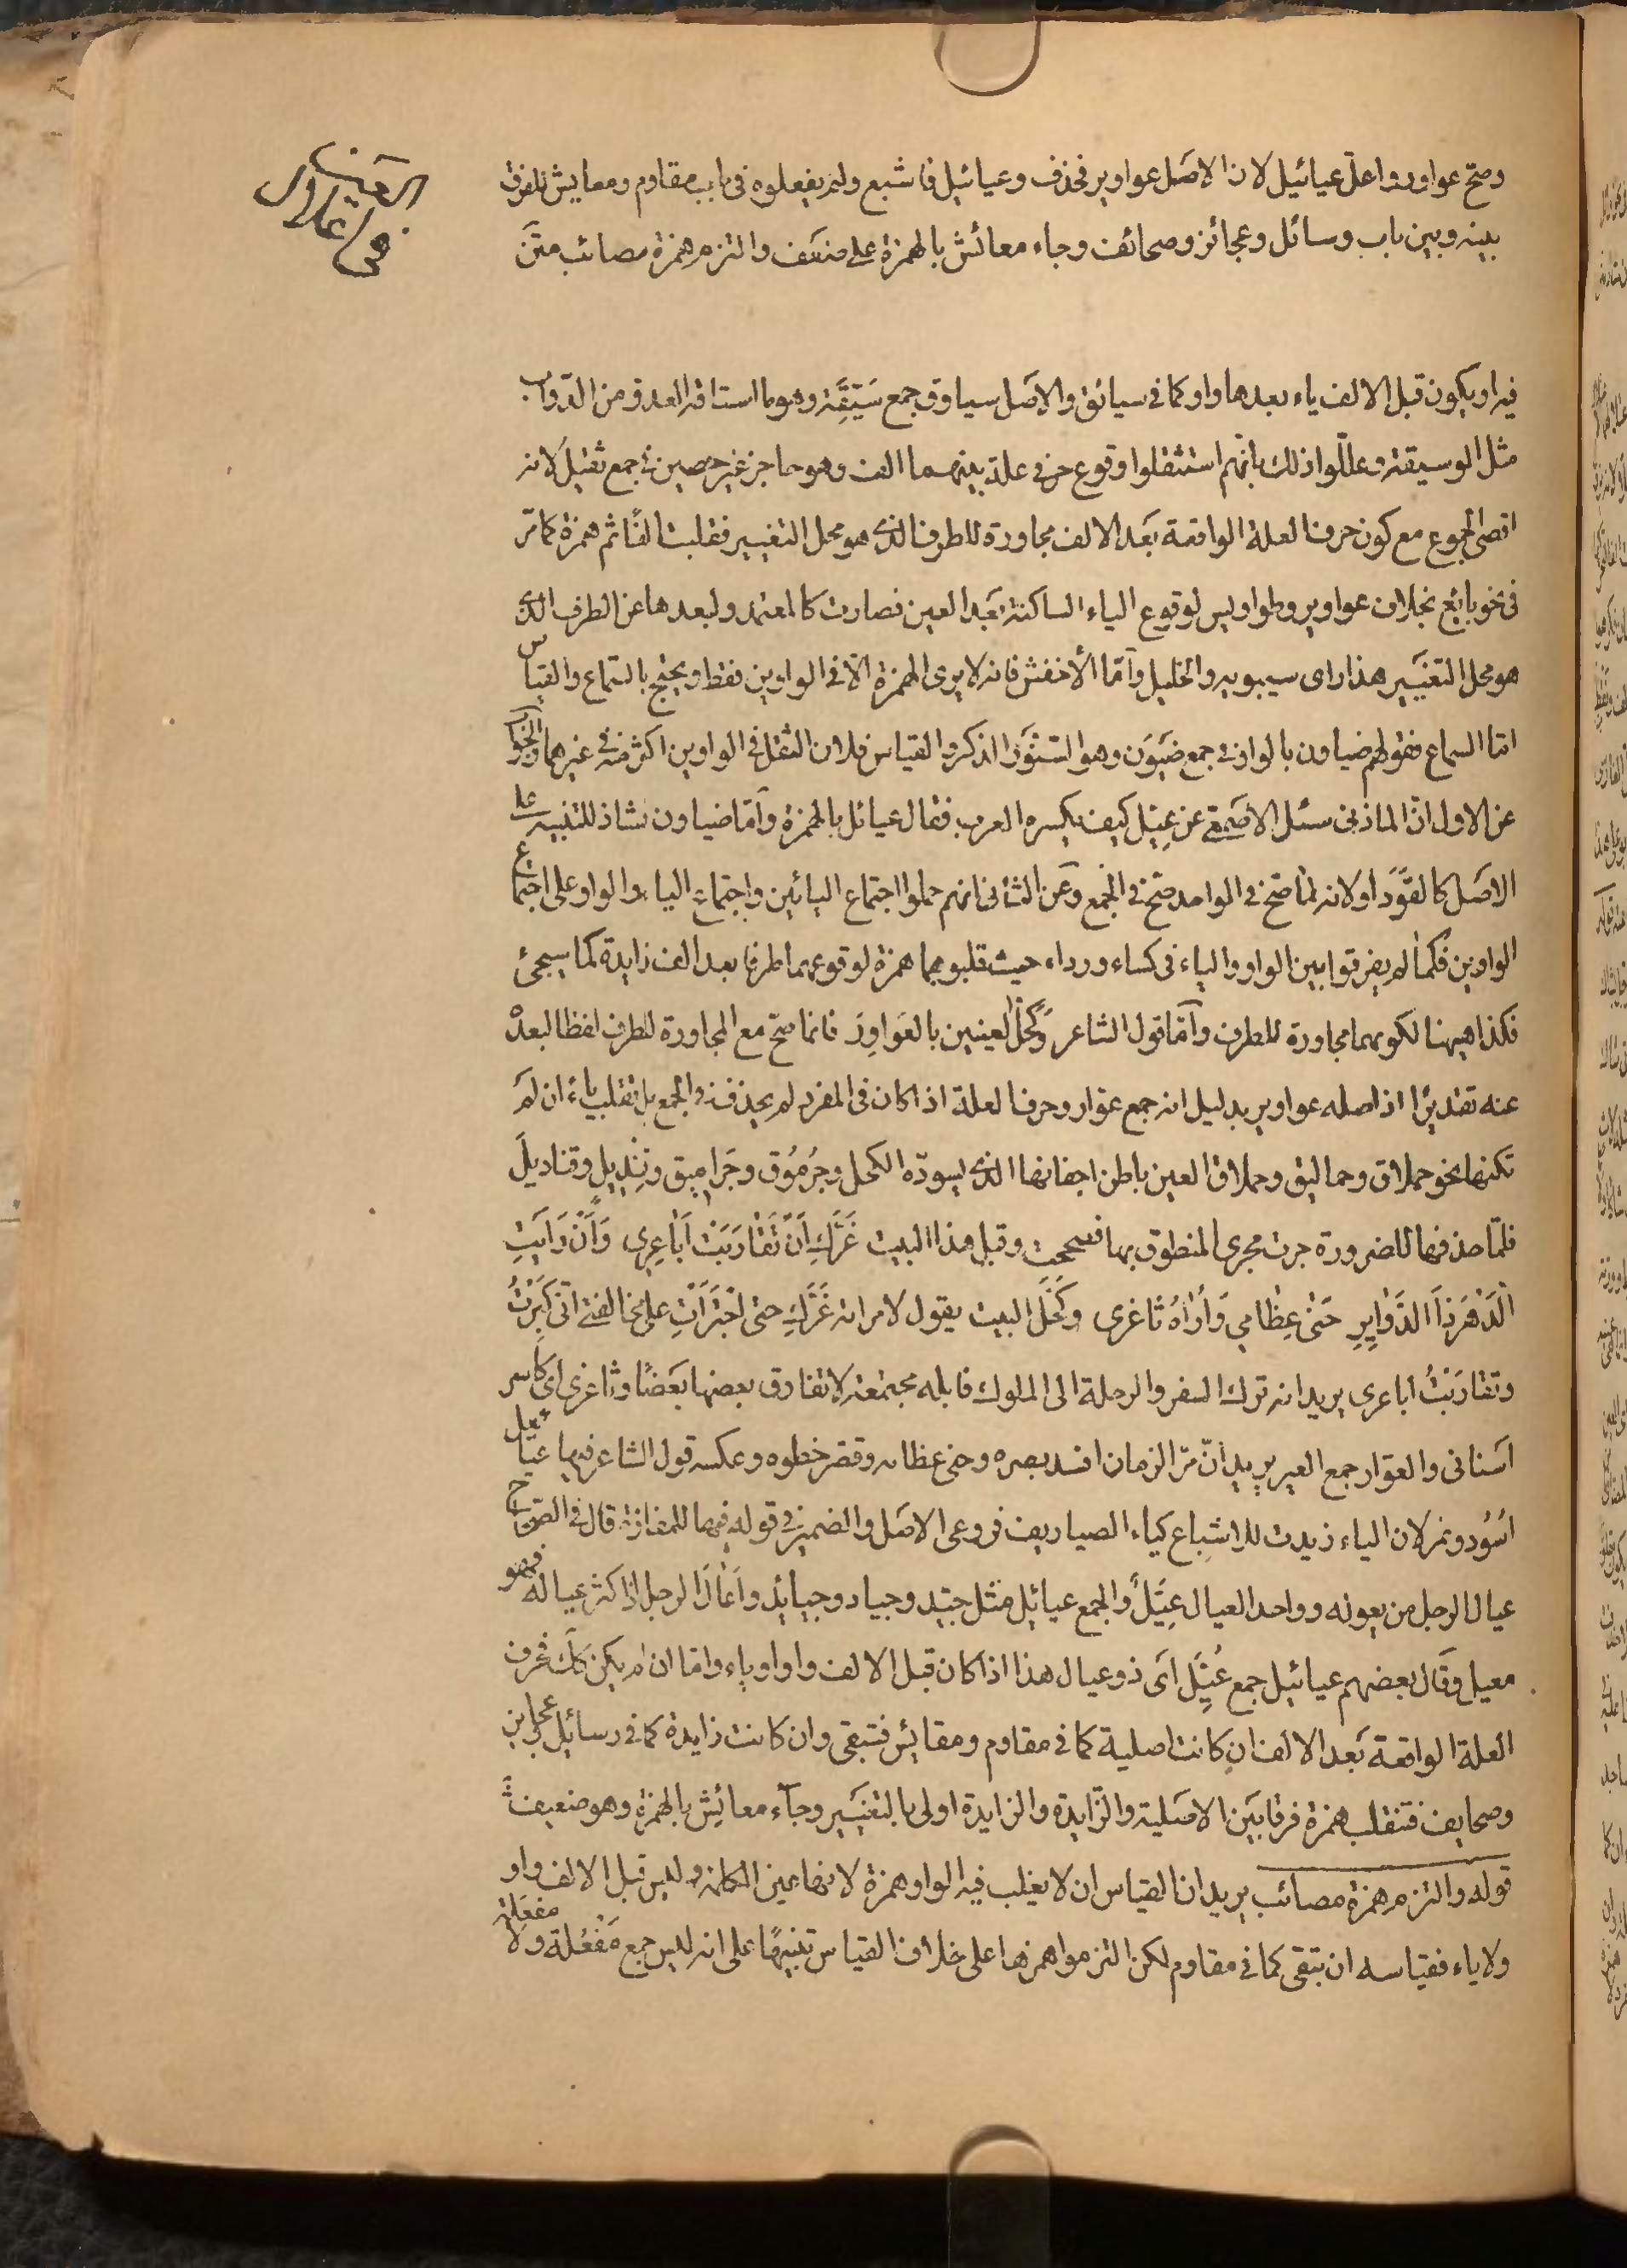 وصح عواور واعل عيائيل لان الاصل عواوير فحذف وعيائيل فاشبع ولم يفعلوه فى باب مقاوم ومعايش للفرق
بينه وبين باب وسائل وعجائز وصحائف وجاء معائش بالهمزة على ضعف والتزم همزة مصائب متن
فى اعلال العين
فيه او يكون قبل الالف ياء بعدها واو كما فى سيائق والاصل سياوق جمع سَيِّقَة وهو ما استاقه العدو من الدواب
مثل الوسيقة وعللوا ذلك بانهم استثقلوا وقوع حرفى علة بينهما الف وهو حاجز غير حصين فى جمع ثقيل لانه
اقصى الجموع مع كون حرف العلة الواقعة بعد الالف مجاورة للطرف الذى هو محل التغيير فقلبت الفًا ثم همزة كما مر
فى نحو بائع بخلاف عواوير وطواويس لوقوع الياء الساكنة بعد العين فصارت كالمعتمد ولبعدها عن الطرف الذى
هو محل التغيير هذا راى سيبويه والخليل وامّا الأخفش فانه لا يرى الهمزة الّا فى الواوين فقط ويحتج بالسماع والقياس
امّا السماع فقولهم ضياون بالواو فى جمع ضَيْوَن وهو السِنَّوْر الذكر والقياس فلان الثقل فى الواوين اكثر منه فى غيرهما والجواب
عن الاول انّ المازنى سئل الاصمعى عن عيّل كيف يكسره العرب فقال عيائل بالهمزة وامّا ضياون فشاذ للتنبيه على
الاصل كالقَوَد او لانه لمّا صحّ فى الواحد صحّ فى الجمع وعن الثانى انهم حملوا اجتماع اليائين واجتماع الياء والواو على اجتماع
الواوين فكما لم يفرقوا بين الواو والياء فى كساء ورداء حيث قلبوهما همزة لوقوعهما طرفا بعد الف زايدة كما سيجئ
فكذا هيهنا لكونهما مجاورة للطرف وامّا قول الشاعر وَكَحَّلَ العينين بالعَوَاوِرِ فانما صحّ مع المجاورة للطرف لفظا لبعده
عنه تقديرًا اذ اصله عواوير بدليل انه جمع عوّار وحرف العلة اذا كان فى المفرد لم يحذف فى الجمع بل تقلب ياءً ان لم
تكنها نحو حملاق وحماليق وحملاق العين باطن اجفانها الذى يسوده الكحل وجُرمُوق وجَراميق وقنديل وقناديل
فلمّا حذفها للضرورة جرت مجرى المنطوق بها فصححت وقبل هذا البيت غَرَّكِ اَنْ تَقَارَبَتْ اَبَاعِرِى وَاَنْ رَاَيتِ
الدَّهْرَ ذَا الدَّوَايِرِ حَنٰى عِظَامِي وَاَرَاهُ ثَاغرى وكَحَّلَ البيت يقول لامراته غَرَّكِ حتى اجْتَرَأتِ على مخالفتى انى كَبِرْتُ
وتقارَبَتْ اباعرى يريد انه ترك السفر والرحلة الى الملوك فابله مجتمعة لا تفارق بعضها بعضًا وثاغرى اى كاسر
اسنانى والعوّار جمع العير يريد انّ مرّ الزمان افسد بصره وحنى عظامه وقصر خطوه وعكسه قول الشاعر فيها عيائيل
اسُود ونمر لان الياء زيدت للاشباع كياء الصياريف فروعى الاصل والضمير فى قوله فيها للمفازة قال فى الصحاح
عيال الرجل من يعوله وواحد العيال عيِّل والجمع عيائل مثل جيّد وجياد وجيائد واعال الرجل اذا كثر عياله فهو
معيل وقال بعضهم عيائيل جمع عيِّل اى ذو عيال هذا اذا كان قبل الالف واو او ياء وامّا ان لم يكن كك فحرف
العلة الواقعة بعد الالف ان كانت اصلية كما فى مقاوم ومقايش فتبقى وان كانت زايدة كما فى رسائل عجايز
وصحايف فتنقلب همزة فرقا بين الاصلية والزايدة والزايدة اولى بالتغيير وجاء معائش بالهمزة وهو ضعيف
قوله والتزم همزة مصائب يريد ان القياس ان لا يقلب فيه الواو همزة لانها عين الكلمة وليس قبل الالف واو
ولا ياء فقياسه ان تبقى كما فى مقاوم لكن التزموا همزها على خلاف القياس تنبيهًا على انه ليس جمع مَفْعُلة ولا مفعَلة